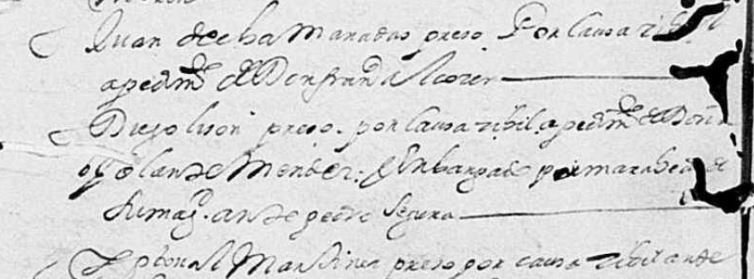 Juan de chamanadas preso Por Causa zibil
a pedimº de Don franda Alcocer
Diego lison preso. por Causa zibil a pedimº de Doña
yolande Mendez. y Enbargado por marabedis de
su magᵈ. ante pedro Segura
Xpobal Martinez preso por causa zibil ante